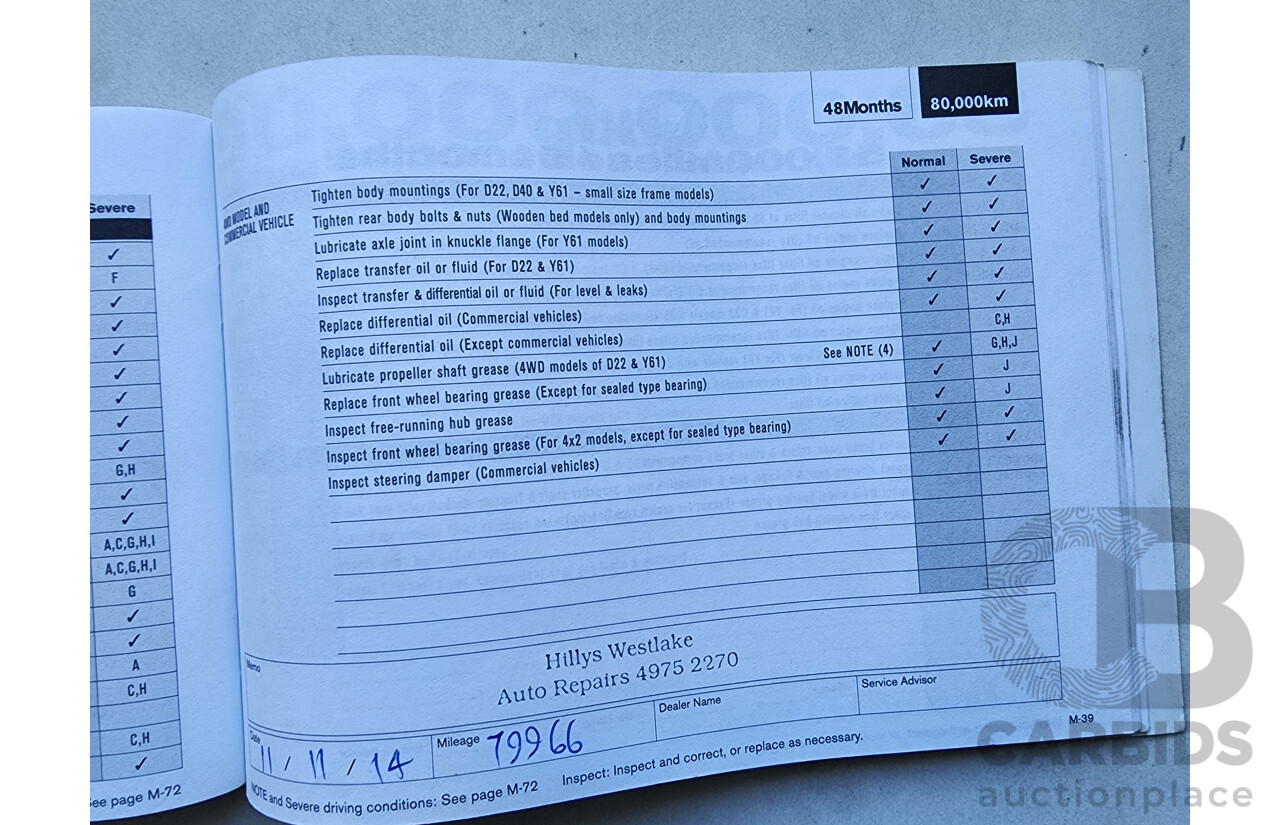 Severe
✓
F
✓
✓
✓
✓
✓
✓
✓
G,H
✓
✓
A,C,G,H,I
A,C,G,H,I
G
✓
✓
A
C,H
C,H
✓
See page M-72
48Months 80,000km
Normal Severe
4WD MODEL AND
COMMERCIAL VEHICLE
Tighten body mountings (For D22, D40 & Y61 – small size frame models) ✓ ✓
Tighten rear body bolts & nuts (Wooden bed models only) and body mountings ✓ ✓
Lubricate axle joint in knuckle flange (For Y61 models) ✓ ✓
Replace transfer oil or fluid (For D22 & Y61) ✓ ✓
Inspect transfer & differential oil or fluid (For level & leaks) ✓ ✓
Replace differential oil (Commercial vehicles) ✓ ✓
Replace differential oil (Except commercial vehicles) C,H
Lubricate propeller shaft grease (4WD models of D22 & Y61) See NOTE (4) ✓ G,H,J
Replace front wheel bearing grease (Except for sealed type bearing) ✓ J
Inspect free-running hub grease ✓ J
Inspect front wheel bearing grease (For 4x2 models, except for sealed type bearing) ✓ ✓
Inspect steering damper (Commercial vehicles) ✓ ✓
Memo
Hillys Westlake
Auto Repairs 4975 2270
Date 11 / 11 / 14 Mileage 79966 Dealer Name Service Advisor
NOTE and Severe driving conditions: See page M-72 Inspect: Inspect and correct, or replace as necessary.
M-39
CARBIDS
auctionplace